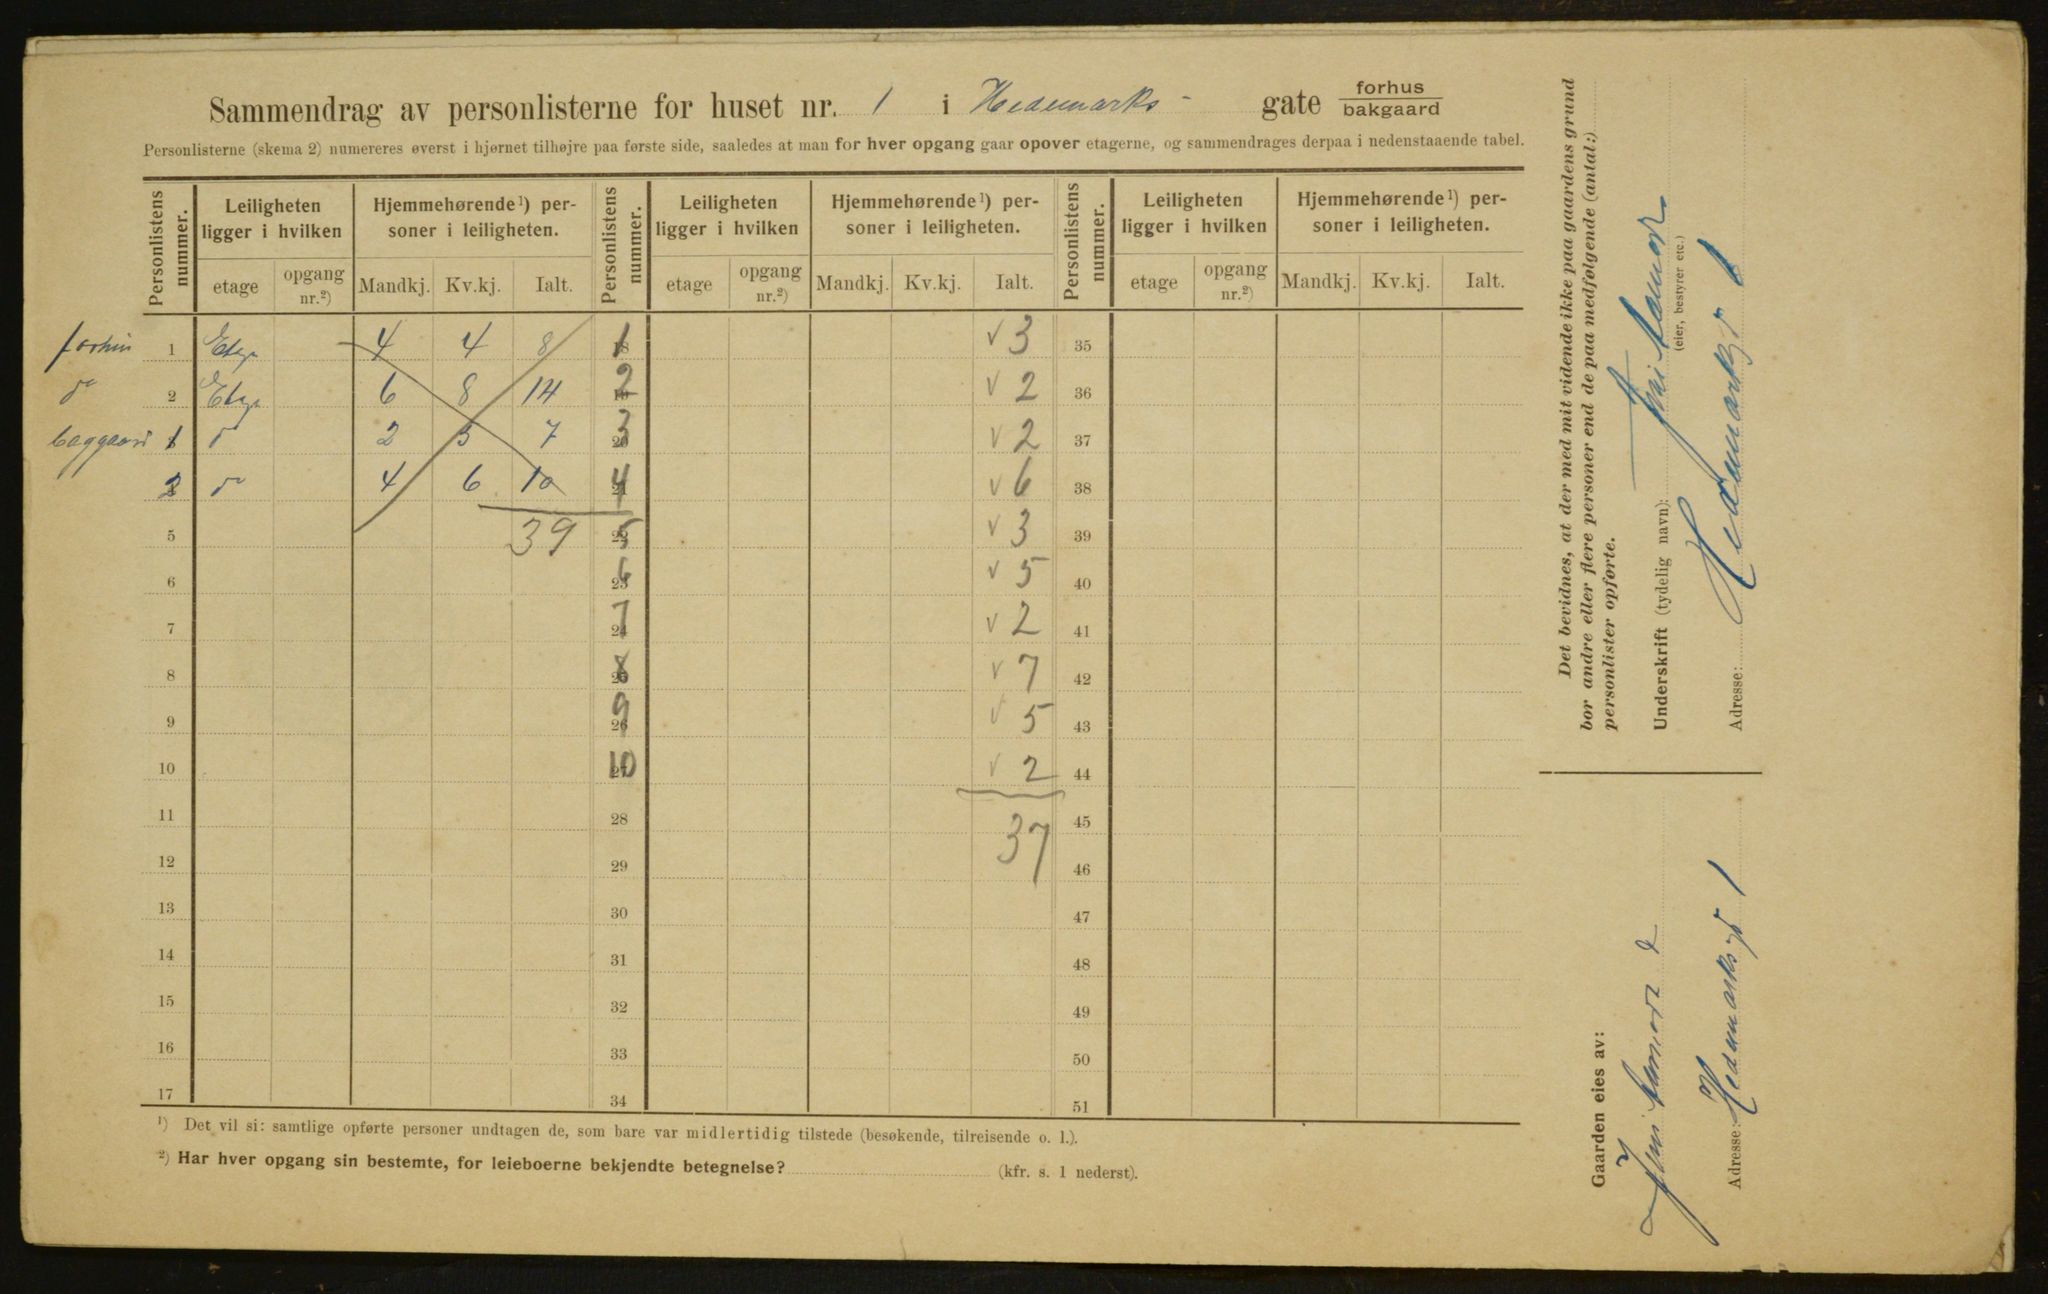 Sammendrag av personlisterne for huset nr. 1 i Hedemarks- gate forhus
bakgaard
Personlisterne (skema 2) numereres øverst i hjørnet tilhøjre paa første side, saaledes at man for hver opgang gaar opover etagerne, og sammendrages derpaa i nedenstaaende tabel.
Personlistens nummer. Leiligheten ligger i hvilken Hjemmehørende¹) personer i leiligheten. Personlistens nummer. Leiligheten ligger i hvilken Hjemmehørende¹) personer i leiligheten. Personlistens nummer. Leiligheten ligger i hvilken Hjemmehørende¹) personer i leiligheten.
etage opgang nr.²) Mandkj. Kv.kj. Ialt. etage opgang nr.²) Mandkj. Kv.kj. Ialt. etage opgang nr.²) Mandkj. Kv.kj. Ialt.
1 Etage 4 4 8 1 v 3 35
do 2 Etage 6 8 14 2 v 2 36
baggaard 1 do 2 5 7 3 v 2 37
2 do 4 6 10 4 v 6 38
5 39 5 v 3 39
6 6 v 5 40
7 7 v 2 41
8 8 v 7 42
9 9 v 5 43
10 10 v 2 44
11 28 37 45
12 29 46
13 30 47
14 31 48
15 32 49
16 33 50
17 34 51
¹) Det vil si: samtlige opførte personer undtagen de, som bare var midlertidig tilstede (besøkende, tilreisende o. l.).
²) Har hver opgang sin bestemte, for leieboerne bekjendte betegnelse? (kfr. s. 1 nederst).
Det bevidnes, at der med mit vidende ikke paa gaardens grund
bor andre eller flere personer end de paa medfølgende (antal:)
personlister opførte.
Underskrift (tydelig navn):
(eier, bestyrer etc.)
Adresse: Hedemarksgt 1
Gaarden eies av:
Adresse: Hedemarksgt 1